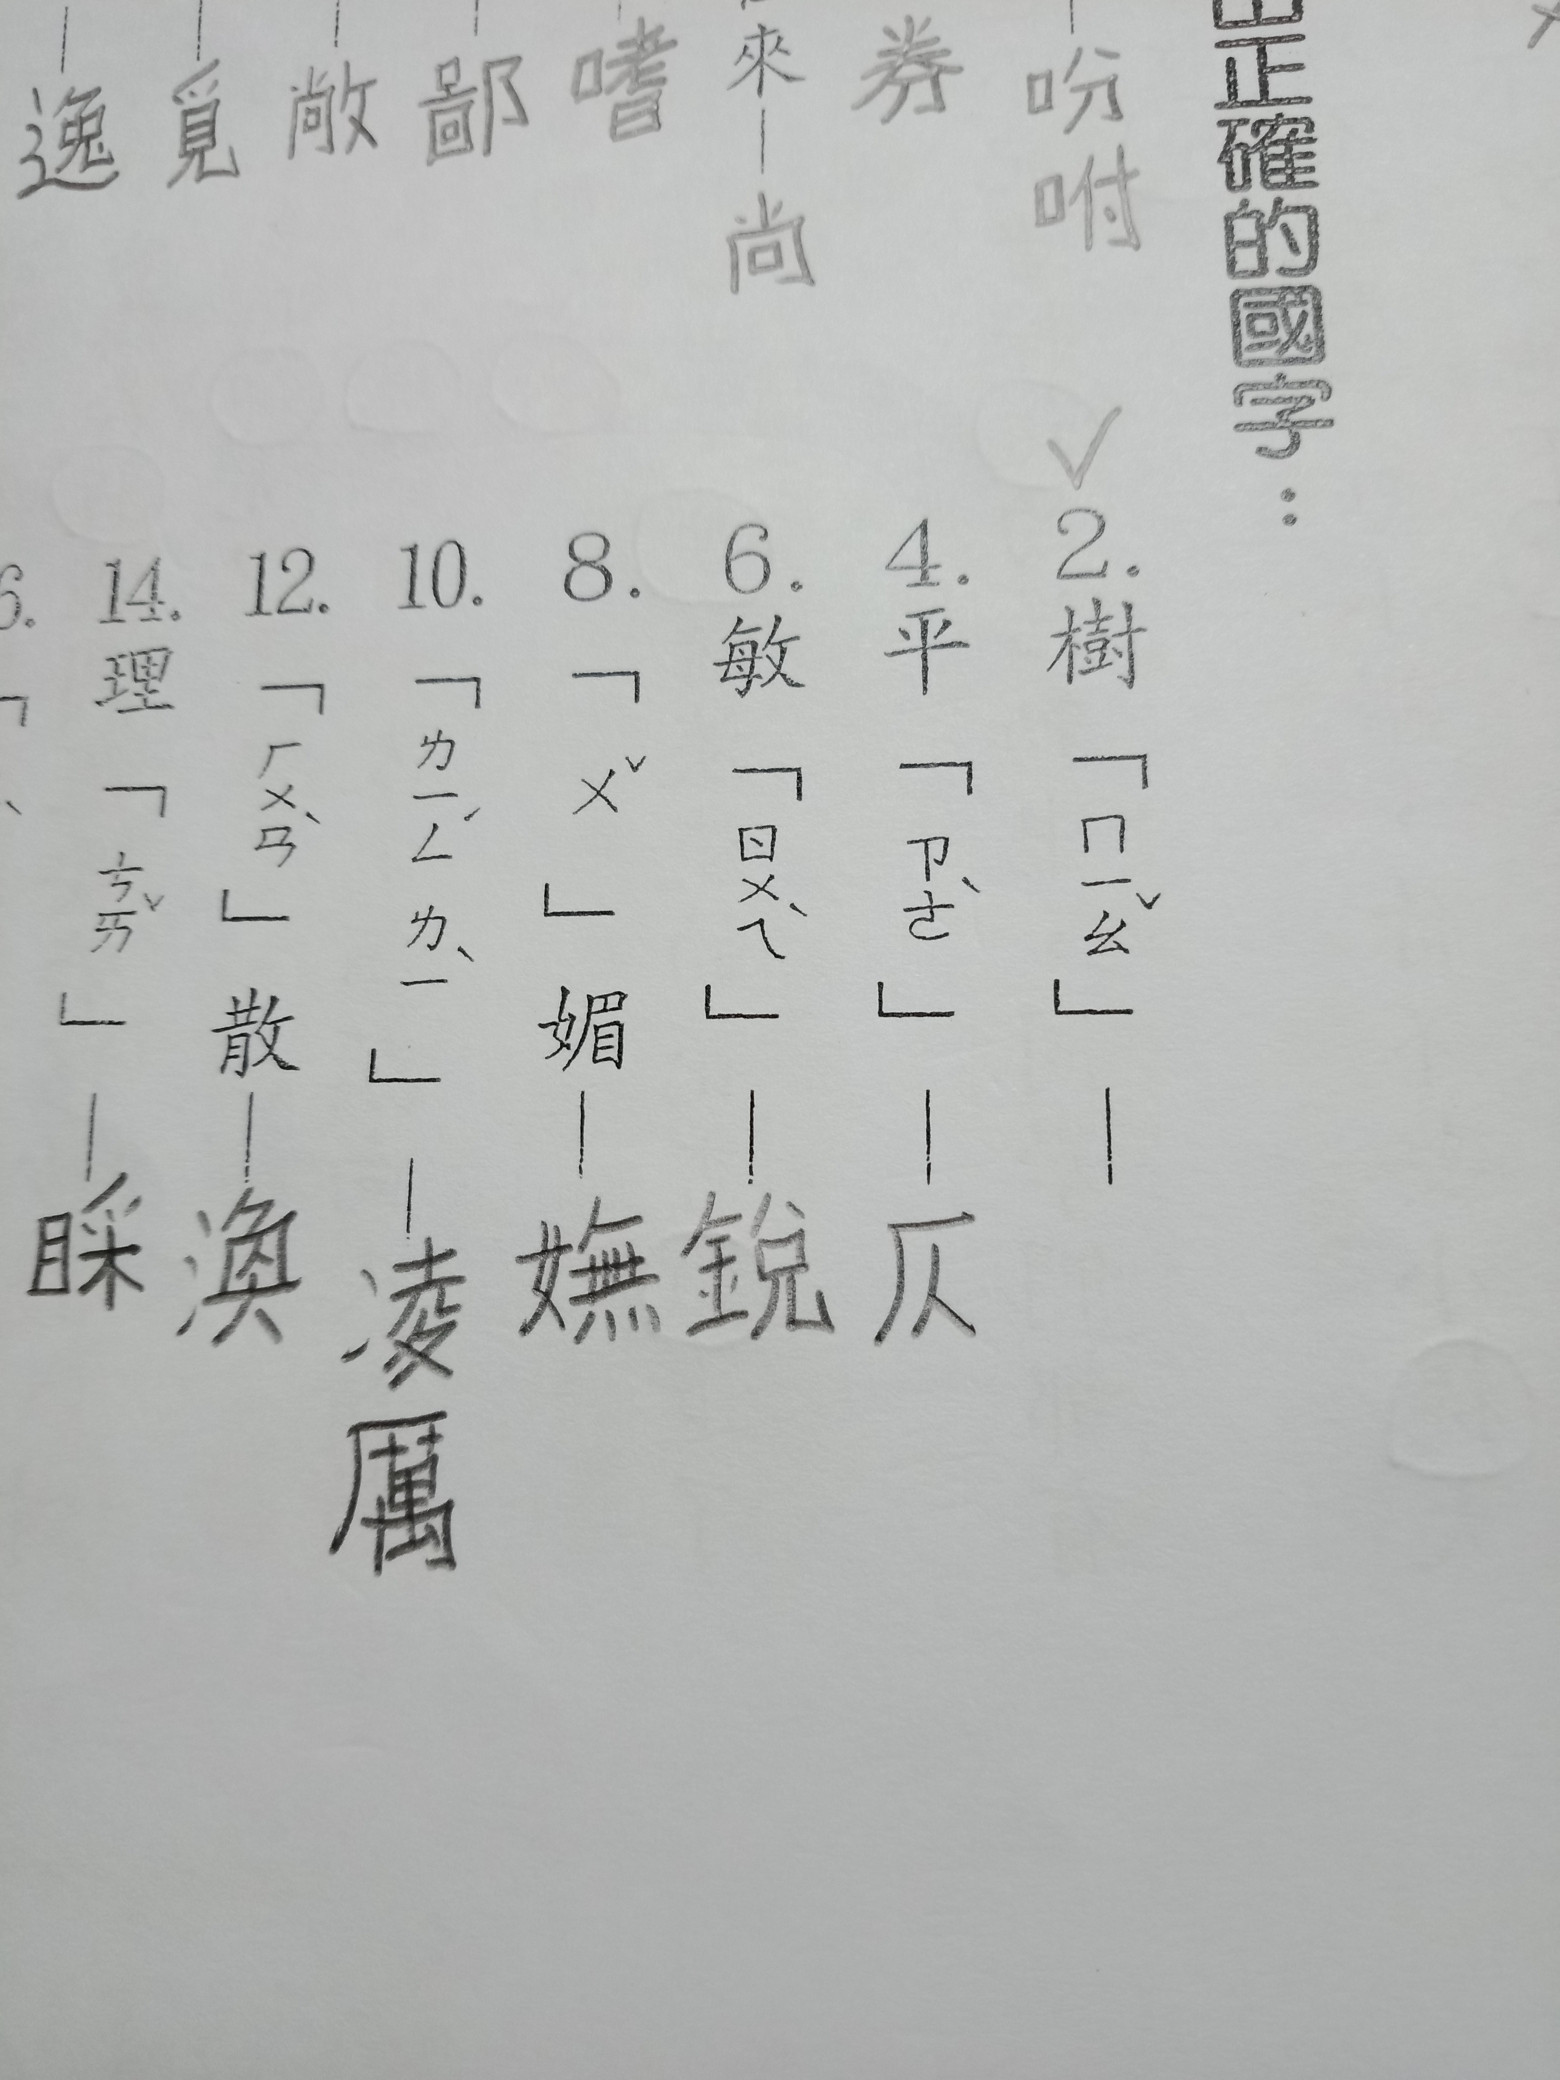 正確的國字：
吩咐
券
來—尚
嗜
鄙
敞
覓
逸
2.樹「ㄇㄧㄠˇ」—
4.平「ㄗㄜˋ」—仄
6.敏「ㄖㄨㄟˋ」—銳
8.「ㄨˇ」媚—嫵
10.「ㄌㄧㄥˊㄌㄧˋ」—凌厲
12.「ㄏㄨㄢˋ」散—渙
14.理「ㄘㄞˇ」—睬